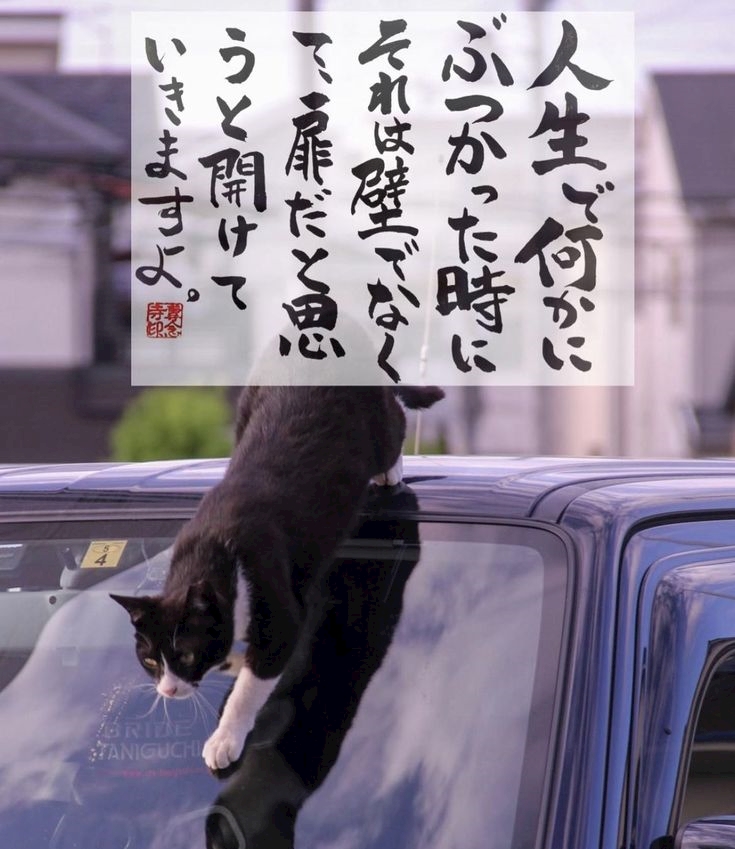 人生で何かに
ぶつかった時に
それは壁でなく
て、扉だと思
うと開けて
いきますよ。
5
4
BRIDE
TANIGUCHI